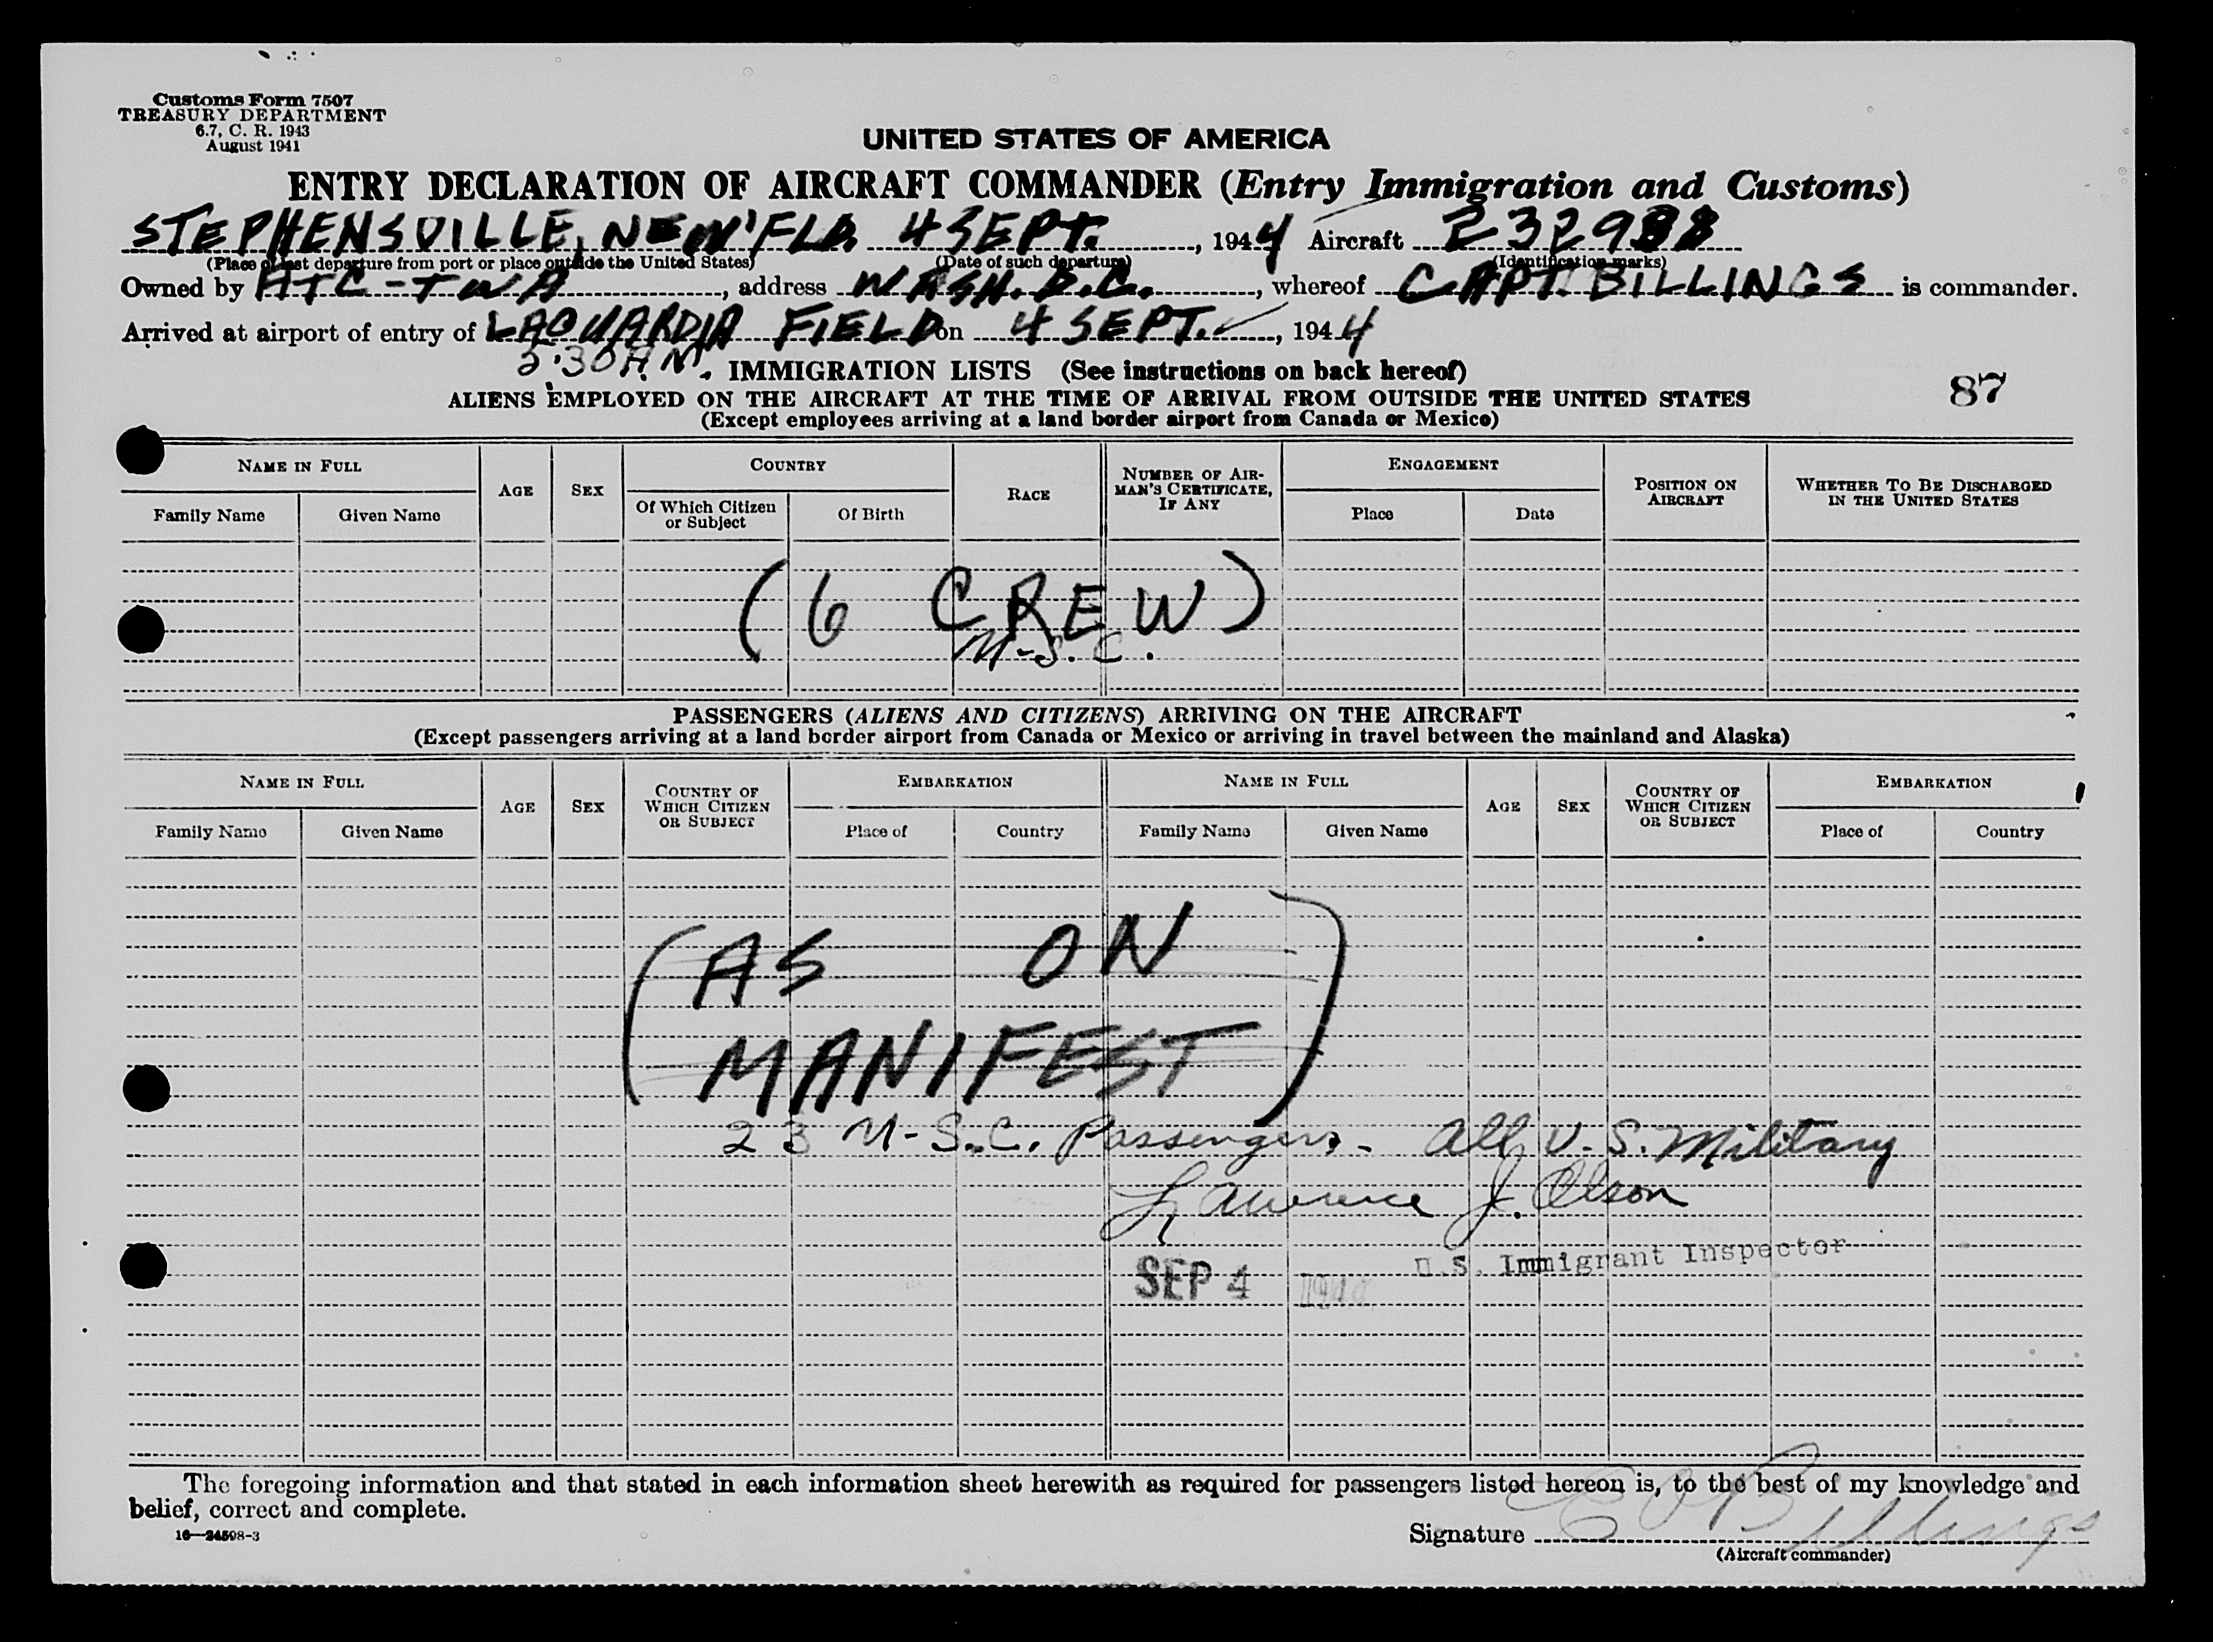 Customs Form 7507
TREASURY DEPARTMENT
6.7, C. R. 1943
August 1941
UNITED STATES OF AMERICA
ENTRY DECLARATION OF AIRCRAFT COMMANDER (Entry Immigration and Customs)
STEPHENSVILLE, NEW'FLD. 4 SEPT., 1944 Aircraft 232988
(Place of last departure from port or place outside the United States) (Date of such departure) (Identification marks)
Owned by ATC-TWA, address WASH. D.C., whereof CAPT. BILLINGS is commander.
Arrived at airport of entry of LAGUARDIA FIELD on 4 SEPT., 1944
:30 A.M.
IMMIGRATION LISTS (See instructions on back hereof)
87
ALIENS EMPLOYED ON THE AIRCRAFT AT THE TIME OF ARRIVAL FROM OUTSIDE THE UNITED STATES
(Except employees arriving at a land border airport from Canada or Mexico)
NAME IN FULL
Family Name Given Name
AGE
SEX
COUNTRY
Of Which Citizen or Subject
Of Birth
RACE
NUMBER OF AIRMAN'S CERTIFICATE, IF ANY
ENGAGEMENT
Place Date
POSITION ON AIRCRAFT
WHETHER TO BE DISCHARGED IN THE UNITED STATES
(6 CREW)
U.S.C.
PASSENGERS (ALIENS AND CITIZENS) ARRIVING ON THE AIRCRAFT
(Except passengers arriving at a land border airport from Canada or Mexico or arriving in travel between the mainland and Alaska)
NAME IN FULL
Family Name Given Name
AGE
SEX
COUNTRY OF WHICH CITIZEN OR SUBJECT
EMBARKATION
Place of Country
NAME IN FULL
Family Name Given Name
AGE
SEX
COUNTRY OF WHICH CITIZEN OR SUBJECT
EMBARKATION
Place of Country
(AS ON
MANIFEST)
23 U.S.C. Passengers - All U.S. Military
Lawrence J. Olson
U.S. Immigrant Inspector
SEP 4 1944
The foregoing information and that stated in each information sheet herewith as required for passengers listed hereon is, to the best of my knowledge and
belief, correct and complete.
16—24598-3
Signature E O Billings
(Aircraft commander)